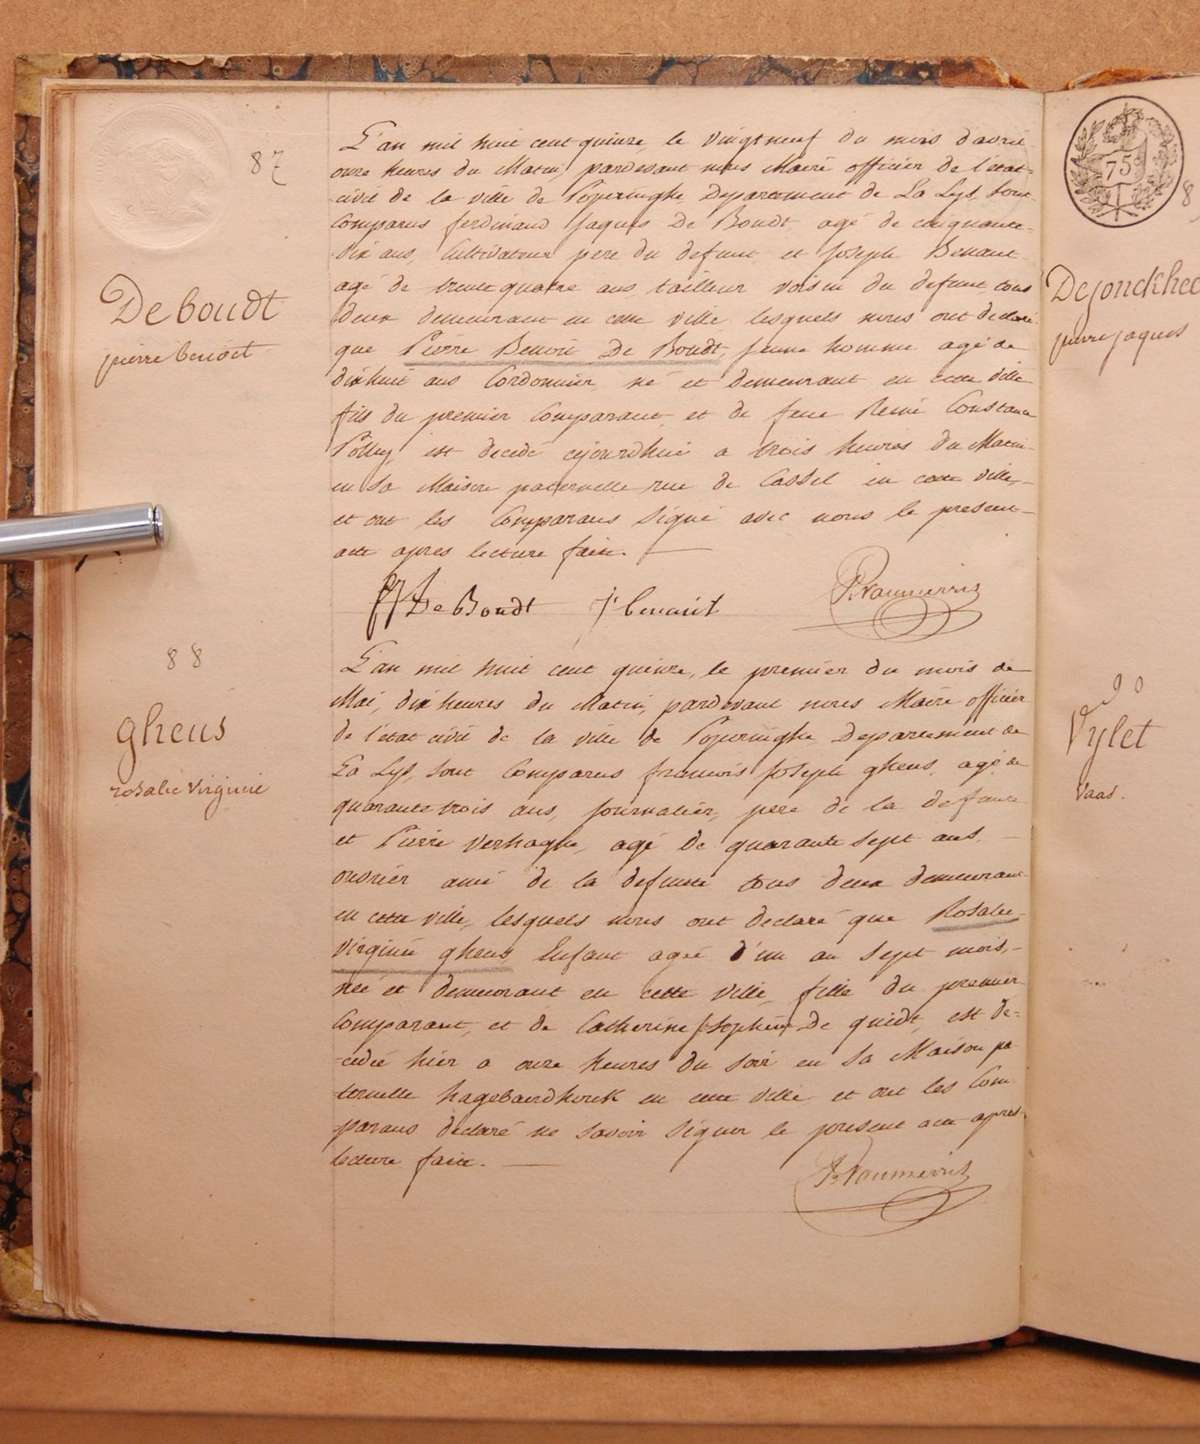 87
De boudt
pierre benoit
L'an mil huit cent quinze, le vingt neuf du mois d'avril
onze heures du Matin, pardevant nous Maire officier de l'état-
civil de la ville de Poperinghe Departement de La Lys, sont
Comparus ferdinand Jaques De Boudt, agé de cinquante-
dix ans, Cultivateur pere du defunt et Joseph Benaut
agé de trente quatre ans tailleur voisin du defunt tous
deux demeurant en cette ville lesquels nous ont declaré
que Pierre Benoit De Boudt, jeune homme agé de
dixhuit ans Cordonnier né et demeurant en cette ville
fils du premier Comparant, et de feue Constance
est decedé cejourdhui a trois heures du Matin
en sa Maison paternelle rue de Cassel en cette ville,
et ont les Comparans signé avec nous le present
acte apres lecture faite.
De Boudt
88
gheus
rosalie virginie
L'an mil huit cent quinze, le premier du mois de
Mai, dix heures du Matin, pardevant nous Maire officier
de l'etat civil de la ville de Poperinghe Departement de
La Lys, sont Comparus francois Joseph gheus, agé de
quarante trois ans, journalier, pere de la defunte
et Pierre Verhaghe, agé de quarante sept ans
ouvrier ami de la defunte tous deux demeurant
en cette ville, lesquels nous ont declaré que Rosalie
Virginie gheus Enfant agée d'un an sept mois,
née et demeurant en cette ville, fille du premier
Comparant, et de Catherine Josephine De quidt, est de-
cedée hier a onze heures du soir en sa Maison pa
ternelle en cette ville et ont les Com
parans declaré ne savoir signer le present acte apres
lecture faite.
75
8
Dejonckhee
pierre jaques
90
Vylet